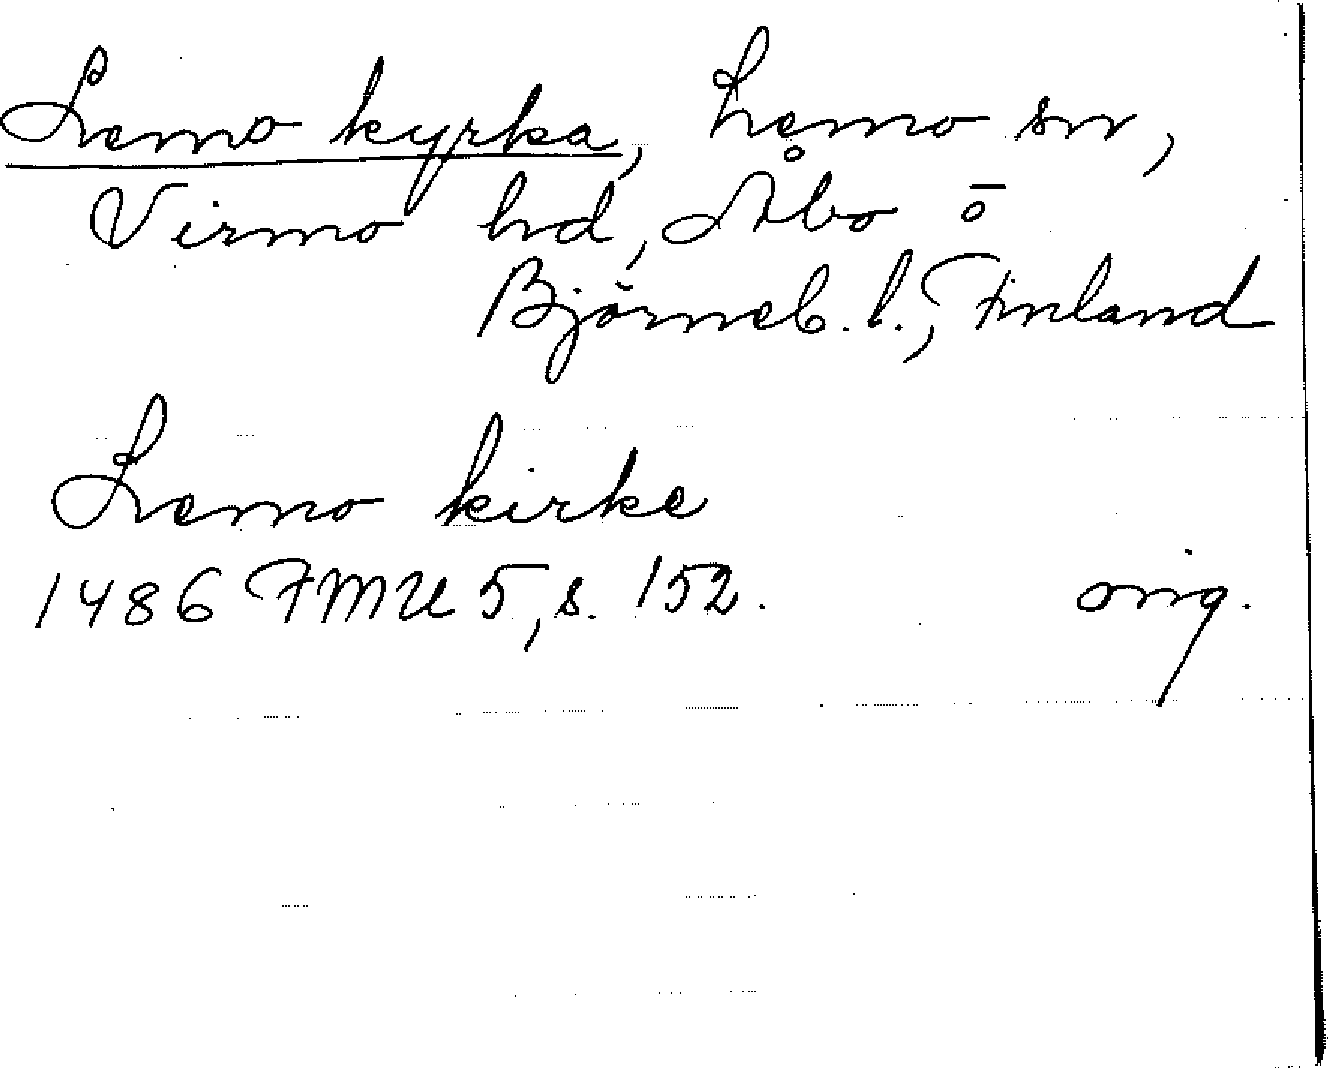 Lemo kyrka, Lemo sn,
Virmo hd, Åbo o
Björneb. l., Finland
Lemo kirke
1486 FMU 5, s. 152. orig.